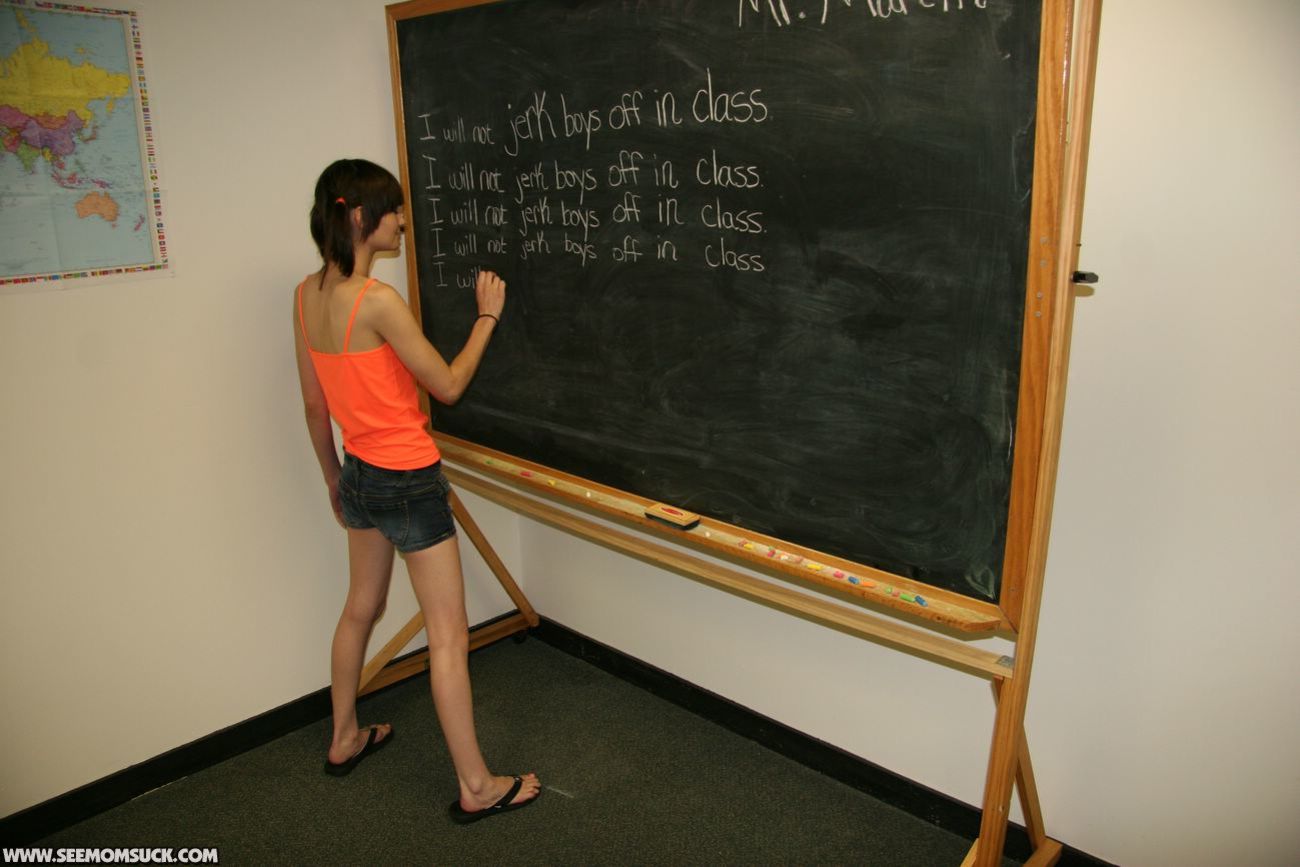 Mr.
I will not jerk boys off in class.
I will not jerk boys off in class.
I will not jerk boys off in class.
I will not jerk boys off in class
I will
WWW.SEEMOMSUCK.COM